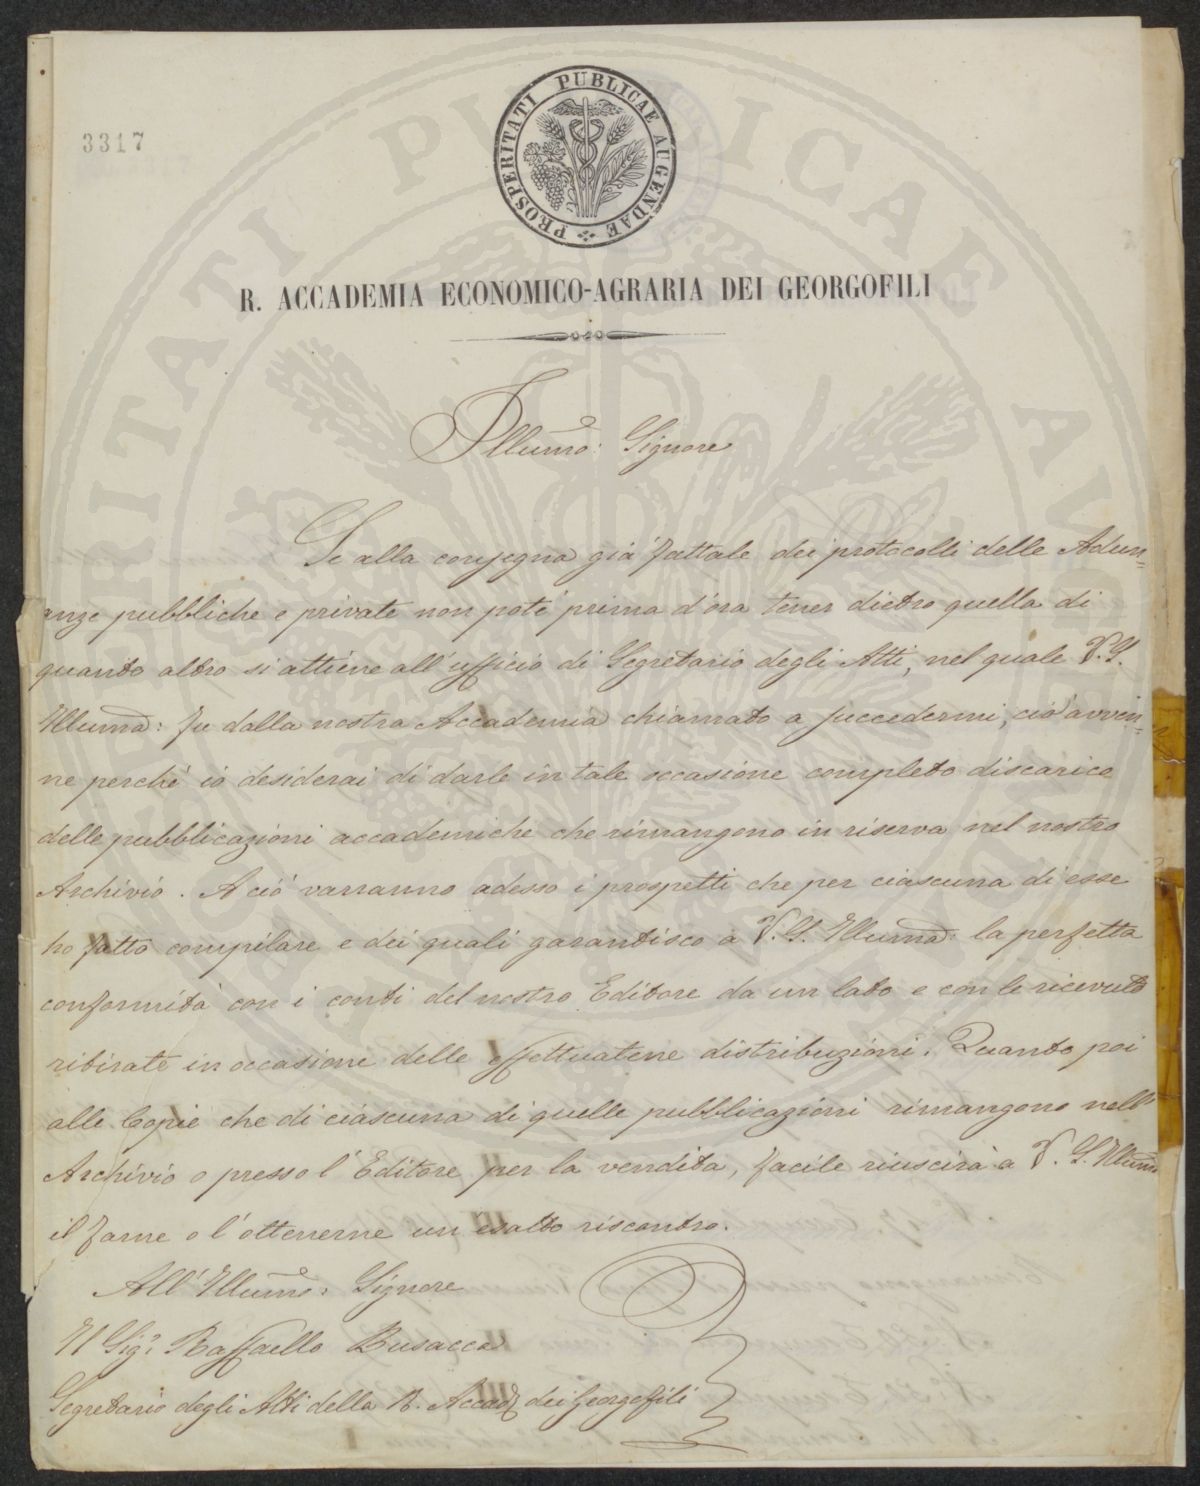 3317
PROSPERITATI PUBLICAE AUGENDAE
R. ACCADEMIA ECONOMICO-AGRARIA DEI GEORGOFILI
Illumo: Signore
Se alla consegna già fattale dei protocolli delle Adun=
anze pubbliche e private non potè prima d'ora tener dietro quella di
quanto altro si attiene all'ufficio di Segretario degli Atti, nel quale V.S.
Illuma: fu dalla nostra Accademia chiamato a succedermi, ciò avven=
ne perchè io desiderai di darle in tale occasione completo discarico
delle pubblicazioni accademiche che rimangono in riserva nel nostro
Archivio. A ciò varranno adesso i prospetti che per ciascuna di esse
ho fatto compilare e dei quali garantisco a V.S. Illuma: la perfetta
conformità con i conti del nostro Editore da un lato e con le ricevute
ritirate in occasione delle effettuatene distribuzioni. Quanto poi
alle Copie che di ciascuna di quelle pubblicazioni rimangono nell'
Archivio o presso l'Editore per la vendita, facile riuscirà a V.S. Illuma
il farne o l'ottenerne un esatto riscontro.
All'Illumo: Signore
Il Sigr: Raffaello Busacca
Segretario degli Atti della R. Accad. dei Georgofili